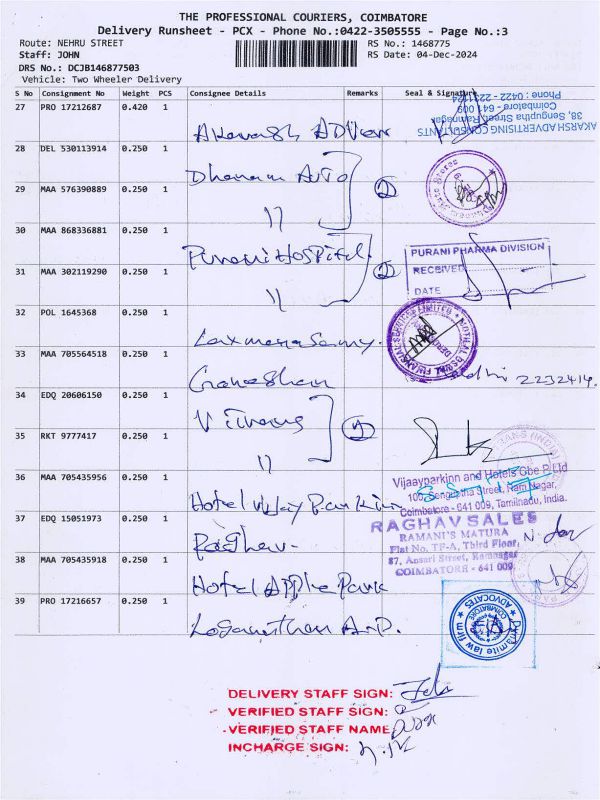 THE PROFESSIONAL COURIERS, COIMBATORE
Delivery Runsheet - PCX - Phone No.:0422-3505555 - Page No.:3
Route: NEHRU STREET RS No.: 1468775
Staff: JOHN RS Date: 04-Dec-2024
DRS No.: DCJB146877503
Vehicle: Two Wheeler Delivery
S No Consignment No Weight PCS Consignee Details Remarks Seal & Signature
27 PRO 17212687 0.420 1
AKARSH ADVERTISING CONSULTANTS
38, Senguptha Street, Ramnagar,
Coimbatore - 641 009
Phone : 0422 - 2231124
28 DEL 530113914 0.250 1 Dhanam Auto
29 MAA 576390889 0.250 1 11 2
30 MAA 868336881 0.250 1 Purani Hospital
31 MAA 302119290 0.250 1 11 2
PURANI PHARMA DIVISION
RECEIVED
DATE
32 POL 1645368 0.250 1 Laxmanasamy.
33 MAA 705564518 0.250 1 Ganeshan
2232414.
34 EDQ 20606150 0.250 1
35 RKT 9777417 0.250 1 11 2
36 MAA 705435956 0.250 1 Hotel Vijay Parkinn
Vijayparkinn and Hotels Gbe P Ltd
100, Senguptha Street, Ram Nagar,
Coimbatore - 641 009, Tamilnadu, India.
37 EDQ 15051973 0.250 1 Raghav-
RAGHAV SALES
RAMANI'S MATURA
Flat No. TF-A, Third Floor,
87, Ansari Street, Ramnagar
COIMBATORE - 641 009.
38 MAA 705435918 0.250 1 Hotel Apple Park
39 PRO 17216657 0.250 1 Loganathan A.P.
Dynamite law firm
ADVOCATES
COIMBATORE
DELIVERY STAFF SIGN:
VERIFIED STAFF SIGN:
VERIFIED STAFF NAME
INCHARGE SIGN: